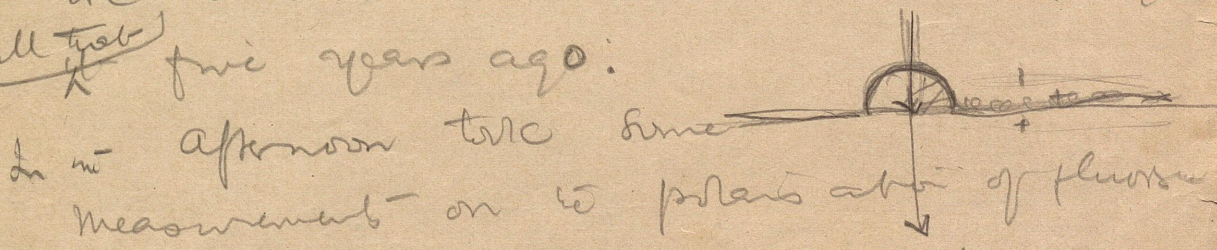 all that
five years ago:
In the afternoon took some
measurements on the polarisation of fluores